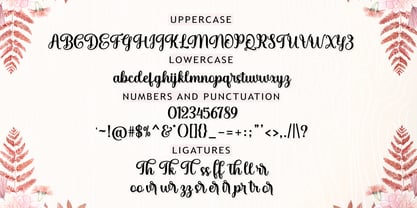 UPPERCASE
ABCDEFGHIJKLMNOPQRSTUVWXYZ
LOWERCASE
abcdefghijklmnopqrstuvwxyz
NUMBERS AND PUNCTUATION
0123456789
`~!@#$%^&*()[]{}_-=+:;"'<>,./|\?
LIGATURES
Th Tk Tl ss ff tt ll rr